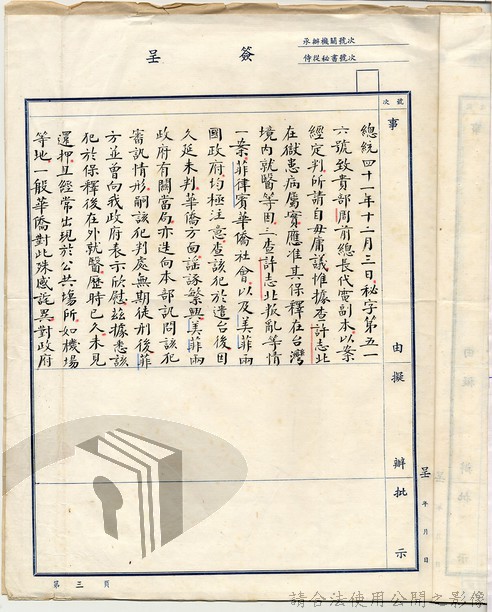 承辦機關號次
侍從秘書號次
簽呈
號次
事由
擬辦
批示
呈
年月日
總統四十一年十二月三日秘字第五一
六號致貴部周前總長代電副本以案
經定判所請自毋庸議惟據查許志北
在獄患病屬實應准其保釋在台灣
境內就醫等因二查許志北叛亂等情
一案菲律賓華僑社會以及美菲兩
國政府均極注意查該犯於遣台後因
久延未判華僑方面謠諑繁興美菲兩
政府有關當局亦迭向本部訊問該犯
審訊情形嗣該犯判處無期徒刑後菲
方並曾向我政府表示欣慰茲據悉該
犯於保釋後在外就醫歷時已久未見
還押且經常出現於公共場所如機場
等地一般華僑對此殊感詫異對政府
第三頁
請合法使用公開之影像